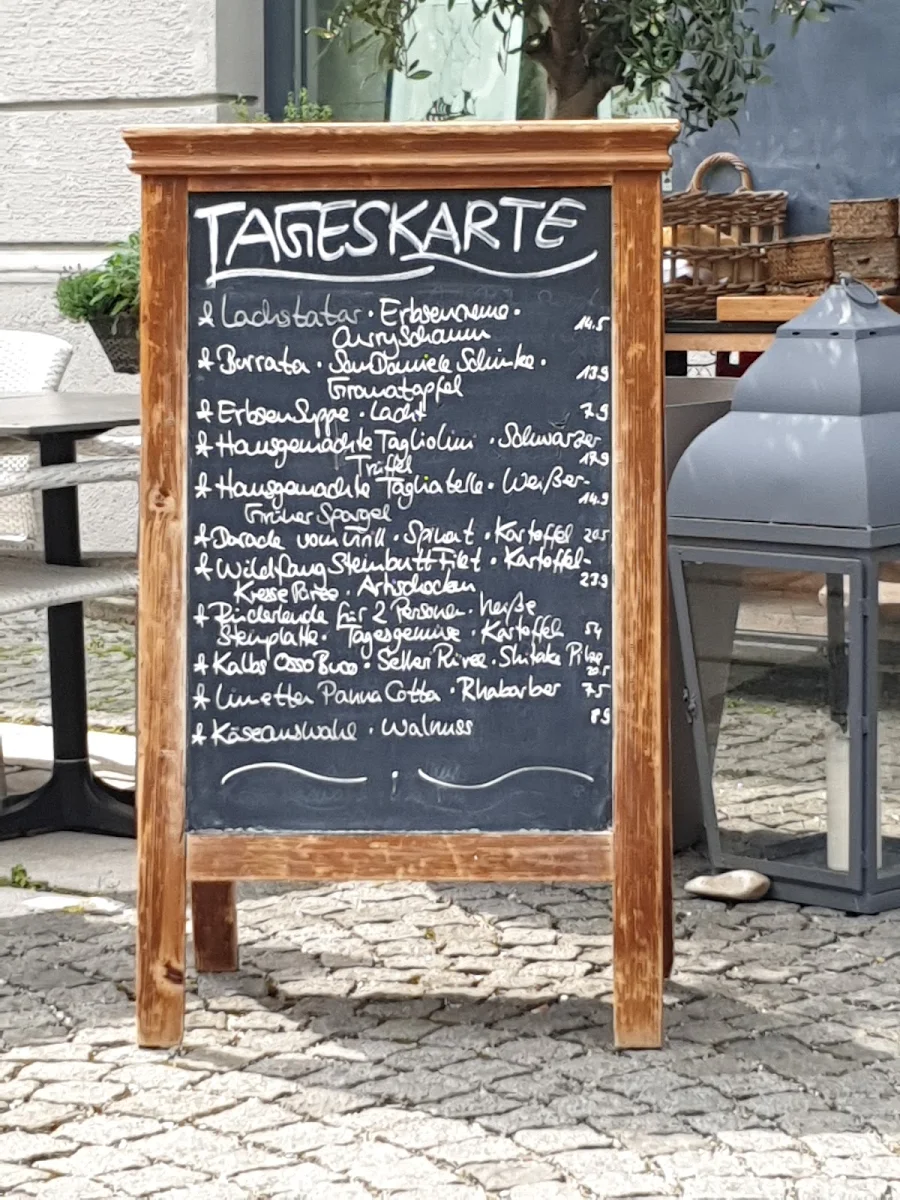 TAGESKARTE
* Lachstatar · Erbsencreme ·
Curryschaum 14.5
* Burrata · San Daniele Schinke ·
Granatapfel 13.9
* Erbsen Suppe · Lachs 7.9
* Hausgemachte Tagliolini · Schwarzer
Trüffel 17.9
* Hausgemachte Tagliatelle · Weißer-
Grüner Spargel 14.9
* Dorade vom Grill · Spinat · Kartoffel 20.5
* Wildfang Steinbutt Filet · Kartoffel-
Kresse Püree · Artischocken 23.9
* Rinderlende für 2 Personen · heiße
Steinplatte · Tagesgemüse · Kartoffel 54
* Kalbs Osso Buco · Sellerie Püree · Shitake Pilze
20.5
* Limetten Panna Cotta · Rhabarber 7.5
8.9
* Käseauswahl · Walnuss